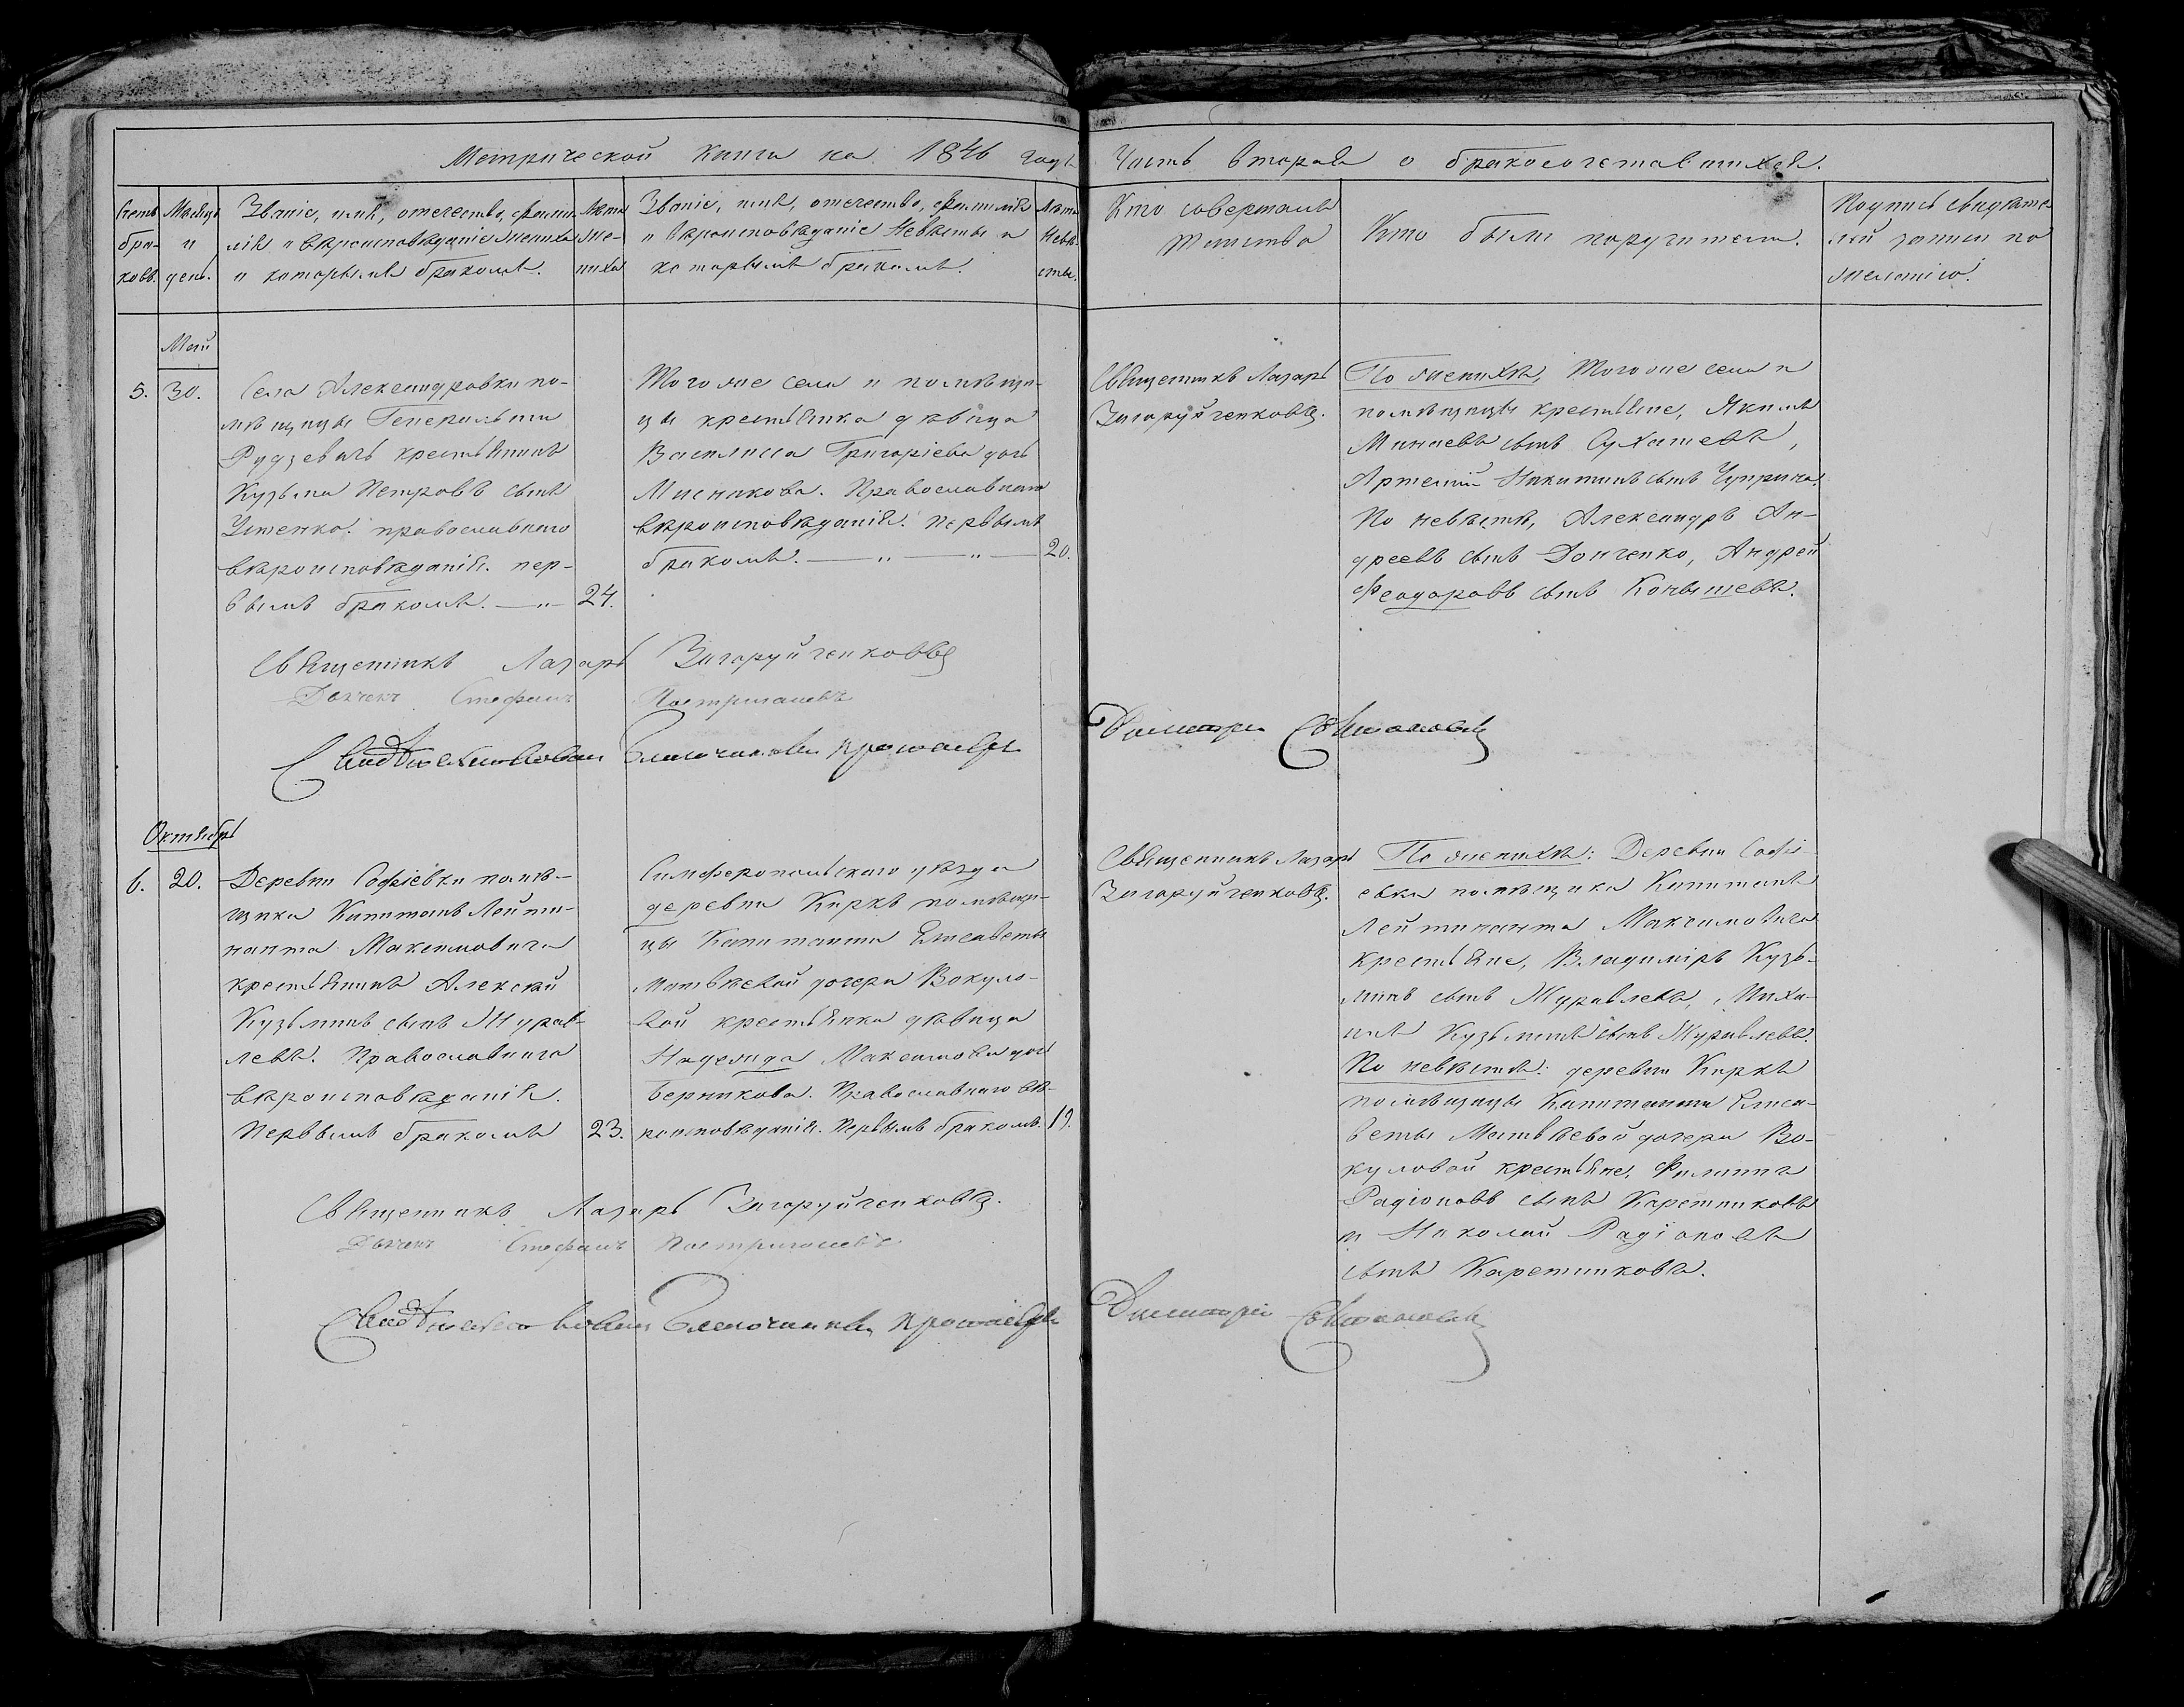 Метрической Книги на 1846 годъ Часть вторая о бракосочетавшихся.
Счетъ браковъ.
Месяцъ и день.
Званіе, имя, отечество, фами-
лія и вѣроисповѣданіе жениха
и которымъ бракомъ.
Лета же-
ниха
Званіе, имя, отечество, фамилія
и вѣроисповѣданіе Невѣсты и
которымъ бракомъ.
Лета Невѣ-
сты.
Кто совершалъ
таинство
Кто были поручители.
Подпись свидѣте-
лей записи по
желанію.
Май
5. 30.
Села Александровки по-
мѣщицы Генеральши
Рудзевичъ крестьянинъ
Кузьма Петровъ сынъ
Устенко. православнаго
вѣроисповѣданія. пер-
вымъ бракомъ. — „ — 24.
Того же села и помѣщи-
цы крестьянка дѣвица
Василиса Григоріева дочь
Мисникова. Православнаго
вѣроисповѣданія. первымъ
бракомъ. — „ — „ — 20.
Священникъ Лазарь
Загоруйченковъ.
По женихѣ, Того же села и
помѣщицы крестьяне, Якимъ
Минаевъ сынъ Сухашевъ,
Артемій Никитинъ сынъ Чуприна.
По невѣстѣ, Александръ Ан-
дреевъ сынъ Донченко, Андрей
Феодоровъ сынъ Конышевъ.
Священникъ Лазарь Загоруйченковъ
Дьячекъ Стефанъ
Димитрій
Октябрь
6. 20.
Деревни Софіевки помѣ-
щика Капитанъ Лейти-
нанта Максимовича
крестьянинъ Алексѣй
Кузьминъ сынъ Журав-
левъ. Православнаго
вѣроисповѣданія.
Первымъ бракомъ 23.
Симферопольскаго уѣзда
деревни Киркъ помѣщи-
цы Капитанши Елисаветы
Матвѣевой дочери Вокуло-
вой крестьянка дѣвица
Надежда Максимова дочь
Берникова. Православнаго вѣ-
роисповѣданія. Первымъ бракомъ. 19.
Священникъ Лазарь
Загоруйченковъ.
По женихѣ: Деревни Софі-
евки помѣщика Капитанъ
Лейтинанта Максимовича
крестьяне, Владиміръ Кузь-
минъ сынъ Журавлевъ, Миха-
илъ Кузьминъ сынъ Журавлевъ.
По невѣстѣ: деревни Киркъ
помѣщицы Капитанши Елиса-
веты Матвѣевой дочери Во-
куловой крестьяне, Филиппъ
Радіоновъ сынъ Каретниковъ
и Николай Радіоновъ
сынъ Каретниковъ.
Священникъ Лазарь Загоруйченковъ.
Дьячекъ Стефанъ
Димитрій